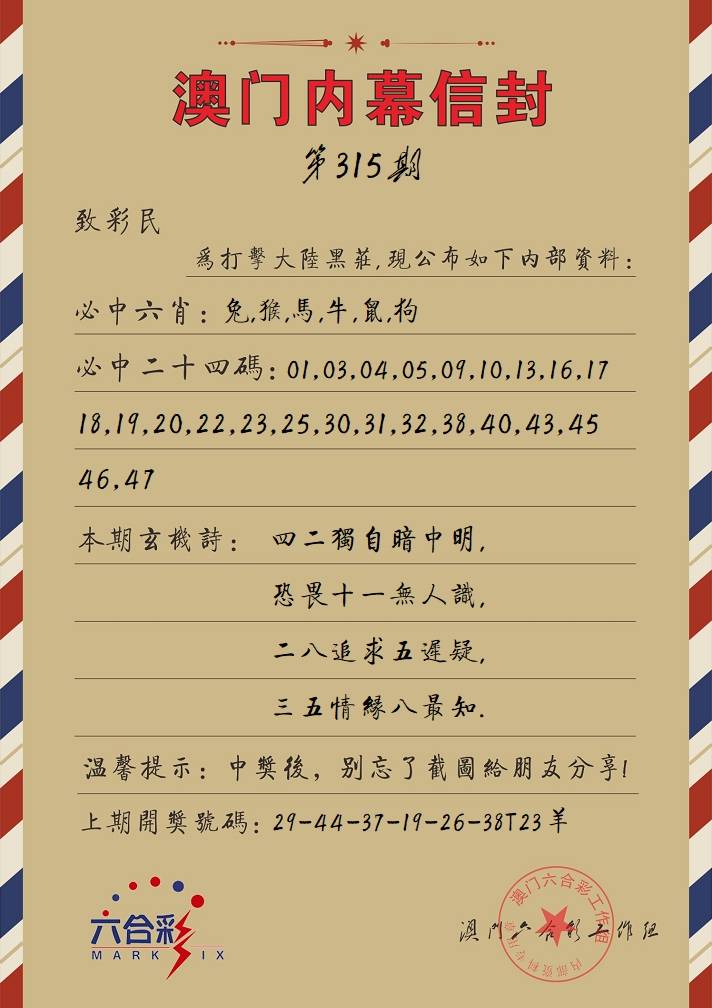 澳门内幕信封
第315期
致彩民
爲打擊大陸黑莊,現公布如下内部資料:
必中六肖:兔,猴,馬,牛,鼠,狗
必中二十四碼:01,03,04,05,09,10,13,16,17
18,19,20,22,23,25,30,31,32,38,40,43,45
46,47
本期玄機詩: 四二獨自暗中明,
恐畏十一無人識,
二八追求五遲疑,
三五情緣八最知.
温馨提示:中獎後,别忘了截圖給朋友分享!
上期開獎號碼:29-44-37-19-26-38T23羊
六合彩
MARK SIX
澳门六合彩工作组
澳门六合彩工作组
内部资料专用章